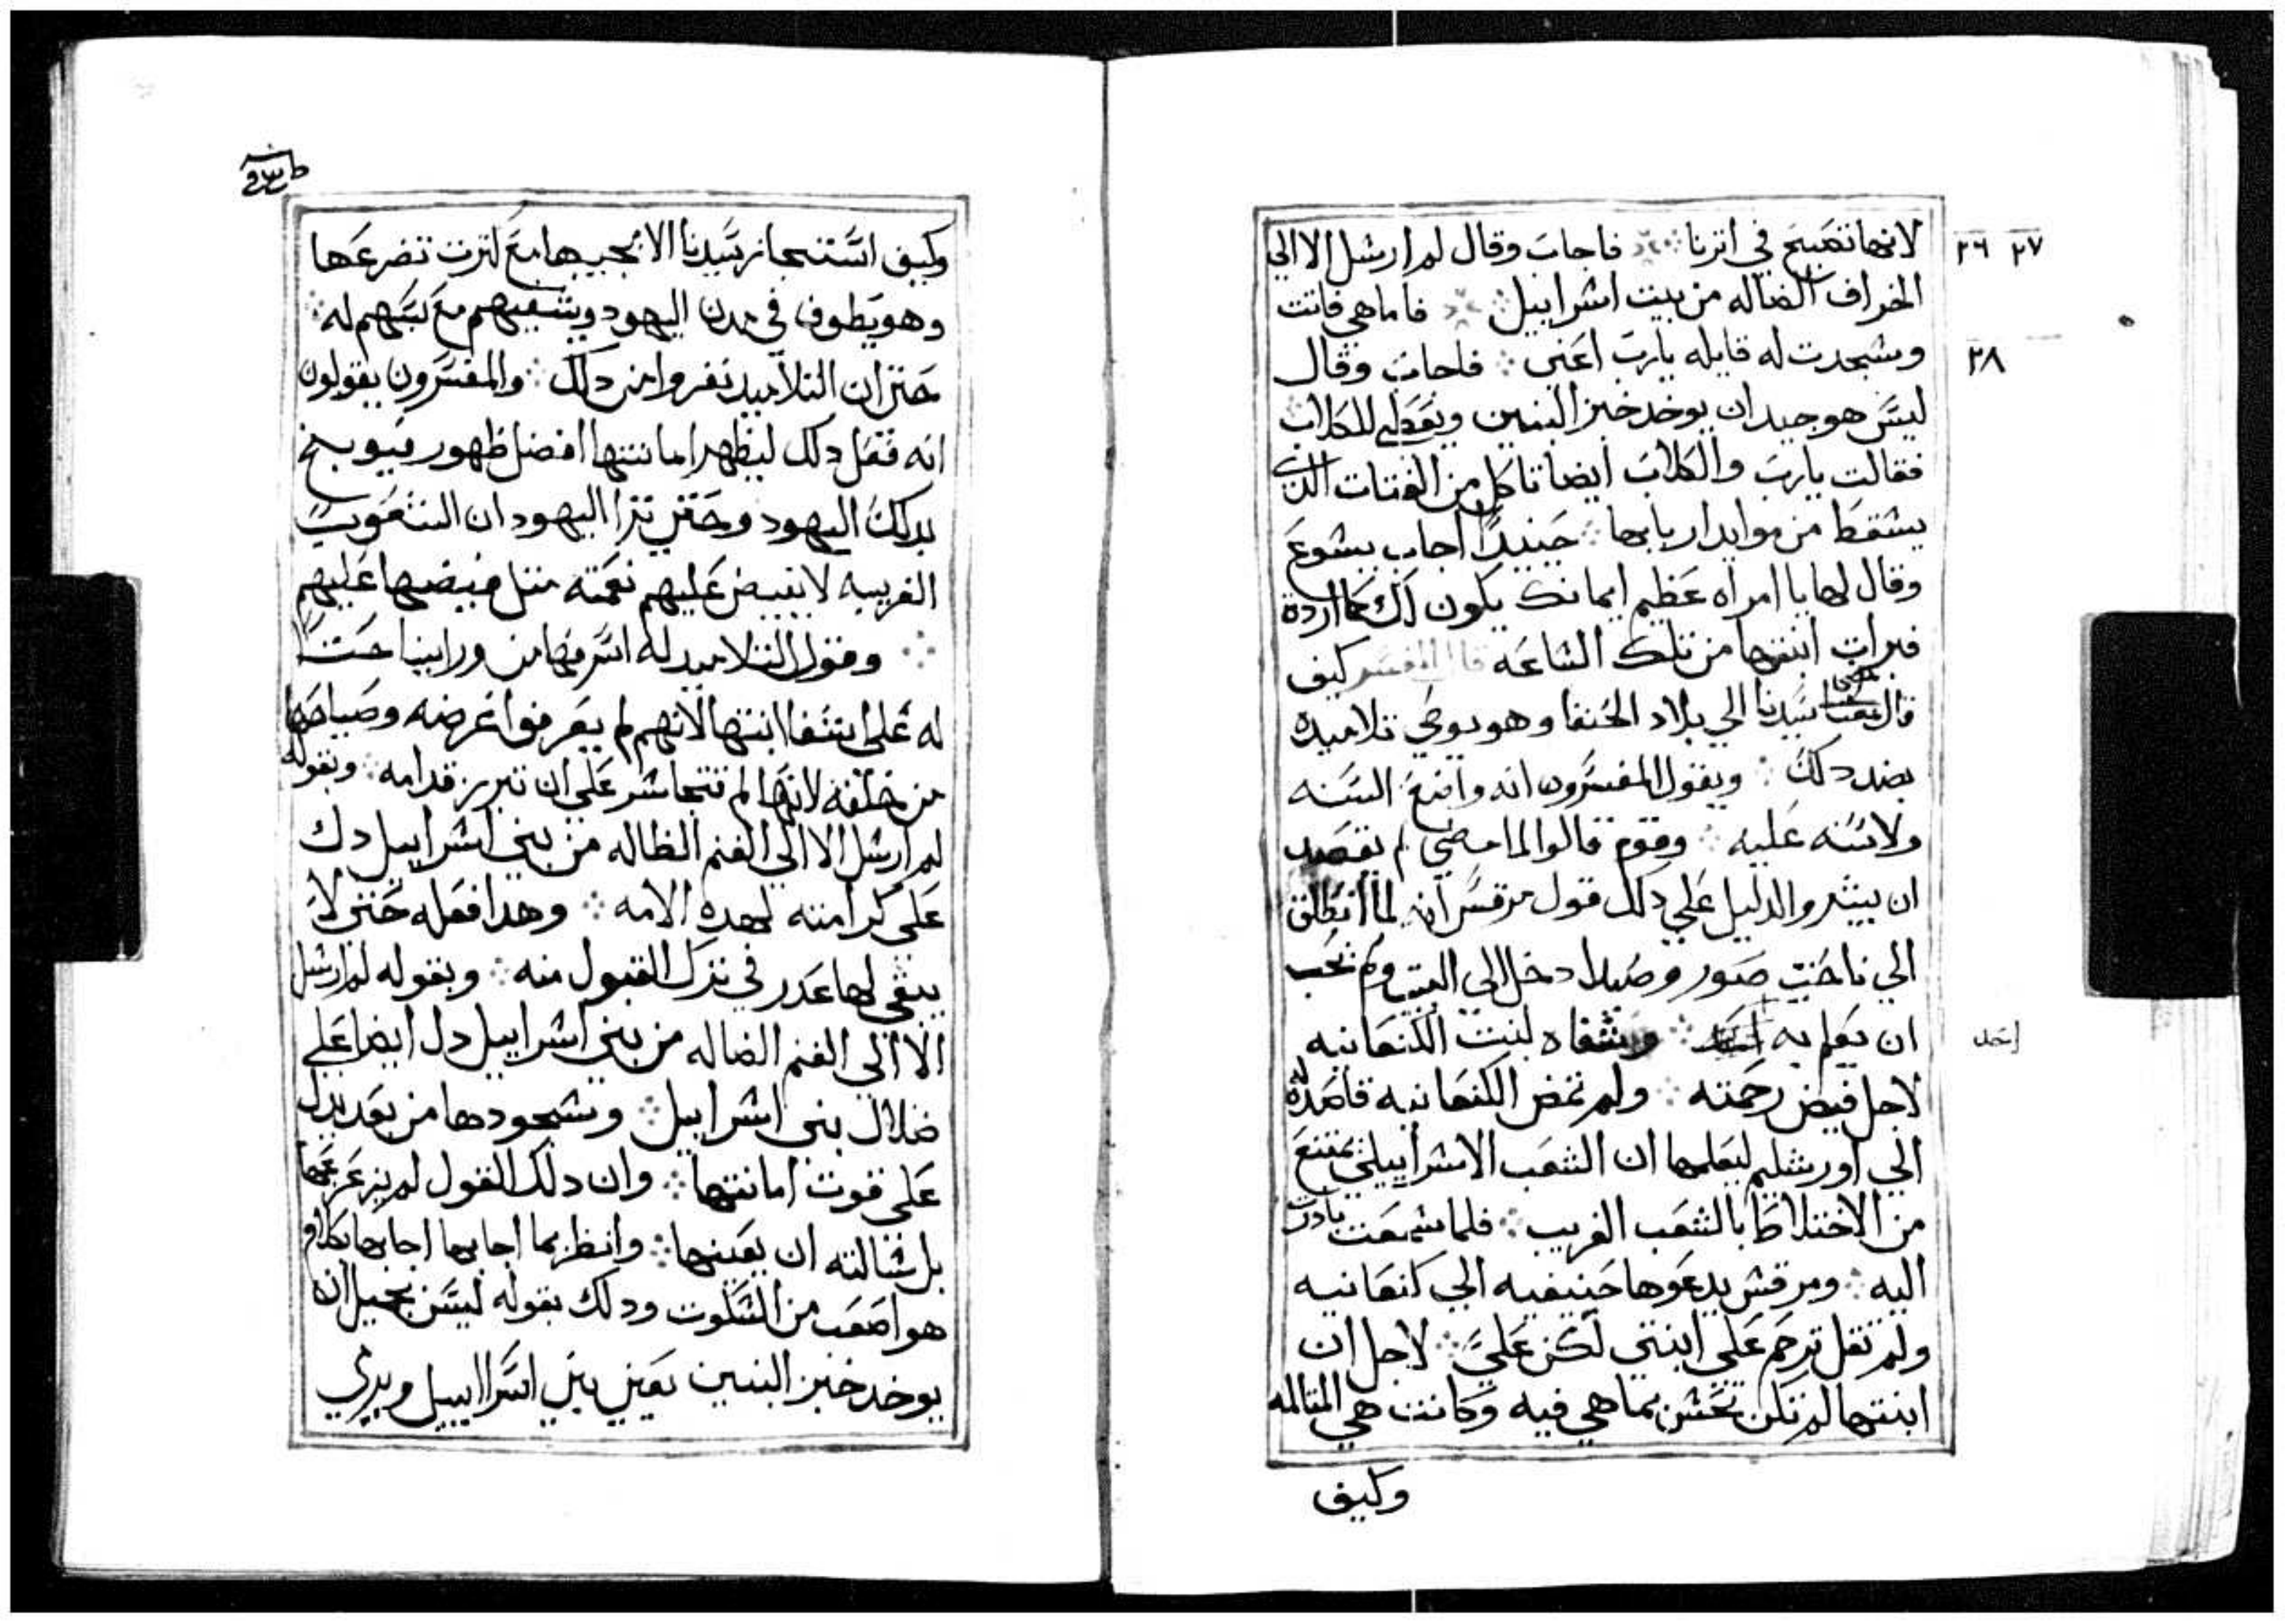 لانها تصيح في اثرنا ⁘ فاجاب وقال لم ارسل الا الي
٢٧ ٢٦
الخراف الضاله من بيت اسراييل ⁘ فاما هي فاتت
وسجدت له قايله يارب اعني ⁘ فاجاب وقال
٢٨
ليس هو جيد ان يوخد خبز البنين ويعطي للكلاب
فقالت يارب والكلاب ايضا تاكل من الفتات الذي
يسقط من موايد اربابها ⁘ حينيدا اجاب يسوع
وقال لها يا امراه عظيم ايمانك يكون لك كما اردة
فبرات ابنتها من تلك الساعه قال المفسر كيف
قال مضي سيدنا الي بلاد الحنفا وهو يوصي تلاميده
بضد دلك ⁘ ويقول المفسرون انه واضع السنه
ولا سنه عليه ⁘ وقوم قالوا لما مضي لم يقصد
ان يبشر والدليل علي دلك قول مرقس انه لما انطلق
الي ناحيت صور وصيدا دخل الي البيت ولم يحب
ان يعلم به احد ⁘ وشفاه لبنت الكنعانيه
احد
لاجل فيض رحمته ⁘ ولم تمض الكنعانيه قاصدة له
الي اورشليم ليعلمها ان الشعب الاسراييلي يمتنع
من الاختلاط بالشعب الغريب ⁘ فلما سمعت بادرت
اليه ⁘ ومرقس يدعوها حنيفيه الي كنعانيه
ولم تقل ترحم علي ابنتي لكن علي ⁘ لاجل ان
ابنتها لم تكن تحس بما هي فيه وكانت هي المتالمه
وكيف
وكيف استجاز سيدنا الا يجيبها مع كثرت تضرعها
وهو يطوف في مدن اليهود ويشفيهم مع سبهم له ⁘
حتي ان التلاميد نفروا من دلك ⁘ والمفسرون يقولون
انه فعل دلك ليظهر امانتها افضل ظهور فيوبخ
بدلك اليهود وحتي ترا اليهود ان الشعوب
الغريبه لا يفيض عليهم نعمته مثل فيضها عليهم
⁘ وقول التلاميد له اسرفها من وراينا حتا
له علي شفا ابنتها لانهم لم يعرفوا غرضه وصياحها
من خلفه لانها لم تتجاسر علي ان تبرز قدامه ⁘ وبقوله
لم ارسل الا الي الغنم الظاله من بني اسراييل دل
علي كرامته لهده الامه ⁘ وهدا فعله حتي لا
يبقي لها عدر في ترك القبول منه ⁘ وبقوله لم ارسل
الا الي الغنم الضاله من بني اسراييل دل ايضا علي
ضلال بني اسراييل ⁘ وسجودها من بعد يدل
علي قوت امانتها ⁘ وان دلك القول لم يزعزعها
بل سالته ان يعينها ⁘ وانظر بما اجابها اجابها بكلام
هو اصعب من السكوت ودلك بقوله ليس بجيد ان
يوخد خبز البنين يعني بني اسراييل ويرمي